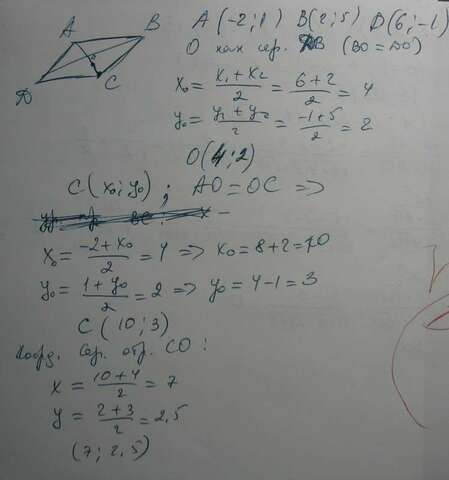 A B
A (-2; 1) B(2; 5) D(6; -1)
O как сер. DB (BO = DO)
x₀ = (x₁ + x₂)/2 = (6+2)/2 = 4
y₀ = (y₁ + y₂)/2 = (-1+5)/2 = 2
O(4; 2)
D C
C(x₀; y₀); AO = OC =>
x₀ = (-2+x₀)/2 = 4 => x₀ = 8+2 = 10
y₀ = (1+y₀)/2 = 2 => y₀ = 4-1 = 3
C (10; 3)
Коорд. сер. отр. CO:
x = (10+4)/2 = 7
y = (2+3)/2 = 2,5
(7; 2,5)